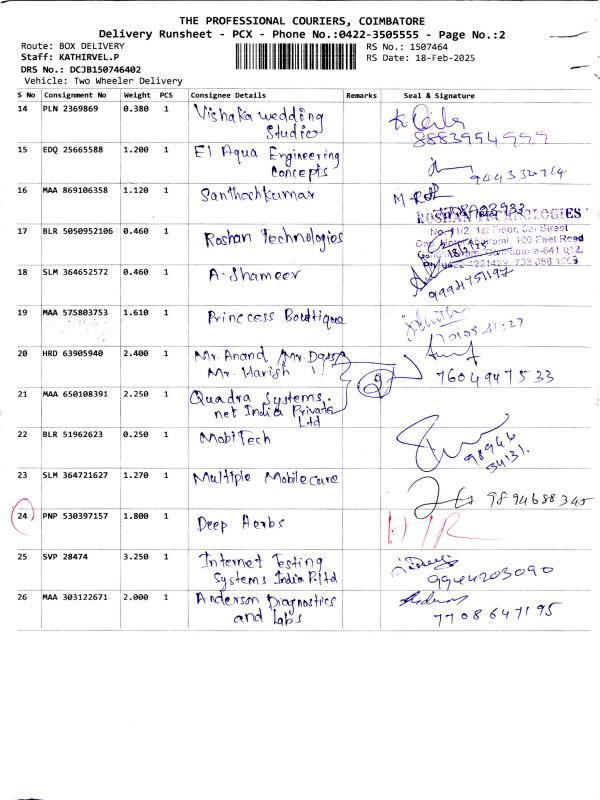 THE PROFESSIONAL COURIERS, COIMBATORE
Delivery Runsheet - PCX - Phone No.:0422-3505555 - Page No.:2
Route: BOX DELIVERY RS No.: 1507464
Staff: KATHIRVEL.P RS Date: 18-Feb-2025
DRS No.: DCJB150746402
Vehicle: Two Wheeler Delivery
S No Consignment No Weight PCS Consignee Details Remarks Seal & Signature
14 PLN 2369869 0.380 1 Vishaka wedding
Studio 8883954999
15 EDQ 25665588 1.200 1 El Aqua Engineering
Concepts
16 MAA 869106358 1.120 1 Santhoshkumar
ROSHAN TECHNOLOGIES
17 BLR 5050952106 0.460 1 Roshan Technologies
No. 11/2, 1st Floor,
100 Feet Road
Coimbatore-641 012.
18 SLM 364652572 0.460 1 A. Shameer
9994751197
19 MAA 575803753 1.610 1 Princcess Bouttique
20 HRD 63905940 2.400 1 Mr. Anand, Mr. Dassa
Mr. Harish 7604947533
21 MAA 650108391 2.250 1 Quadra Systems.
net India Private
Ltd
22 BLR 51962623 0.250 1 MobiTech
98946
34131.
23 SLM 364721627 1.270 1 Multiple Mobile care
9894688345
24 PNP 530397157 1.800 1 Deep Herbs
25 SVP 28474 3.250 1 Internet Testing
Systems India P/ltd 9944203090
26 MAA 303122671 2.000 1 Anderson Diagnostics
and labs 7708647195